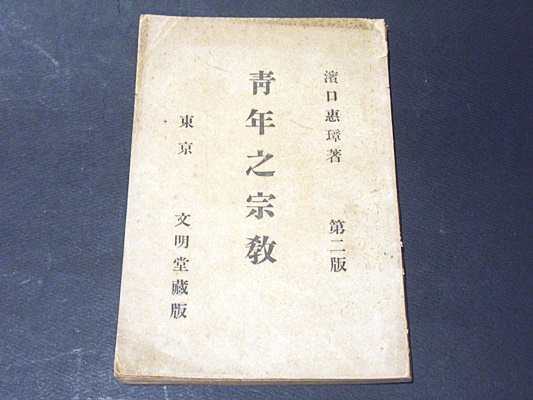 濱口惠璋著 第二版
靑年之宗敎
東京 文明堂藏版